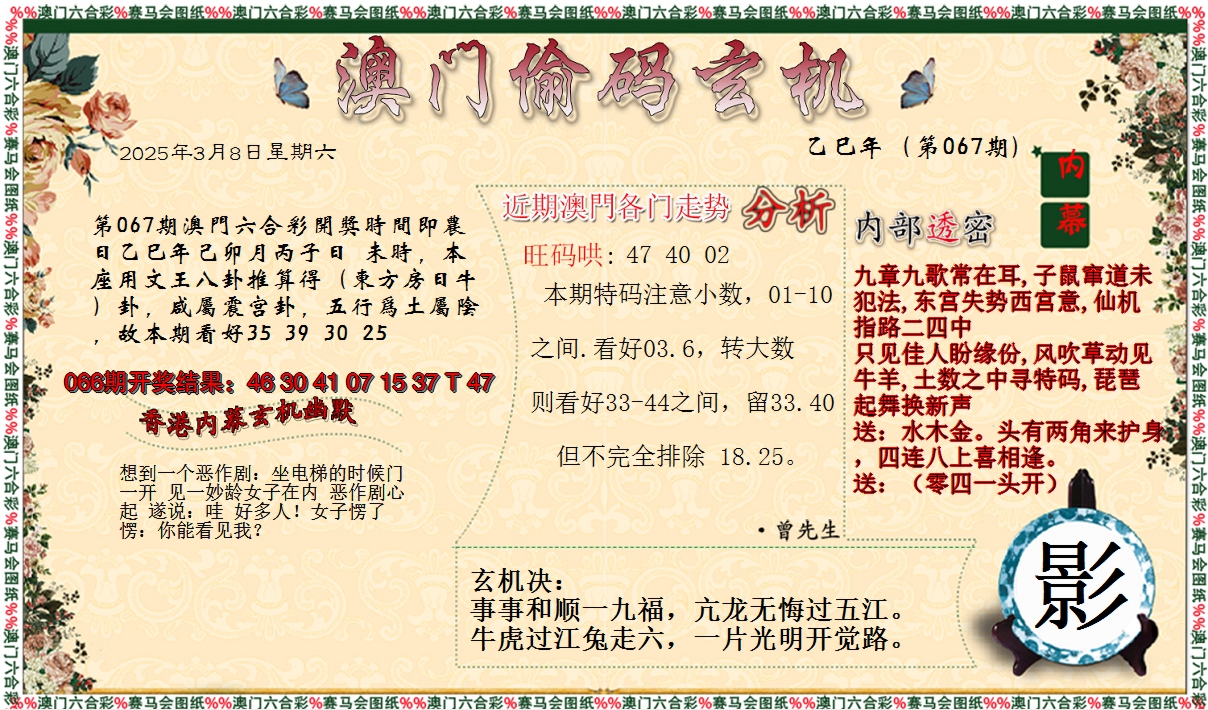 %%澳门六合彩%赛马会图纸%%澳门六合彩%赛马会图纸%%澳门六合彩%赛马会图纸%%澳门六合彩%赛马会图纸%%澳门六合彩%赛马会图纸%%澳门六合彩%赛马会图纸%%
澳门偷码玄机
2025年3月8日星期六
乙巳年（第067期）
内幕
第067期澳門六合彩開獎時間即農
日乙巳年己卯月丙子日 未時，本
座用文王八卦推算得（東方房日牛
）卦，咸屬震宫卦，五行爲土屬陰
，故本期看好35 39 30 25
066期开奖结果：46 30 41 07 15 37 T 47
香港内幕玄机幽默
想到一个恶作剧：坐电梯的时候门
一开 见一妙龄女子在内 恶作剧心
起 遂说：哇 好多人！女子愣了
愣：你能看见我？
近期澳門各门走势 分析
旺码哄：47 40 02
本期特码注意小数，01-10
之间.看好03.6，转大数
则看好33-44之间，留33.40
但不完全排除 18.25。
·曾先生
内部透密
九章九歌常在耳,子鼠窜道未
犯法,东宫失势西宫意,仙机
指路二四中
只见佳人盼缘份,风吹草动见
牛羊,土数之中寻特码,琵琶
起舞换新声
送：水木金。头有两角来护身
，四连八上喜相逢。
送：（零四一头开）
玄机决：
事事和顺一九福，亢龙无悔过五江。
牛虎过江兔走六，一片光明开觉路。
影
%%澳门六合彩%赛马会图纸%%澳门六合彩%赛马会图纸%%澳门六合彩%赛马会图纸%%澳门六合彩%赛马会图纸%%澳门六合彩%赛马会图纸%%澳门六合彩%赛马会图纸%%